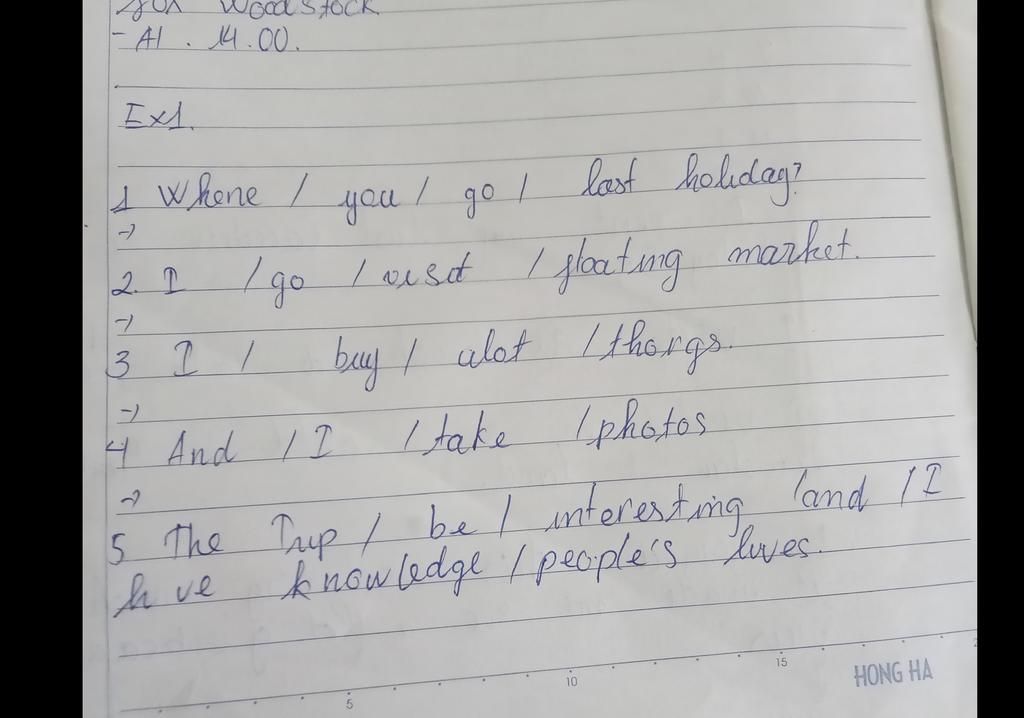 for Woodstock
- At . 14.00.
Ex1.
1 Where / you / go / last holiday?
→
2. I / go / visit / floating market.
→
3 I / buy / alot / things.
→
4 And / I / take / photos
→
5 The Trip / be / interesting / and / I
have knowledge / people's lives.
5 10 15
HONG HA